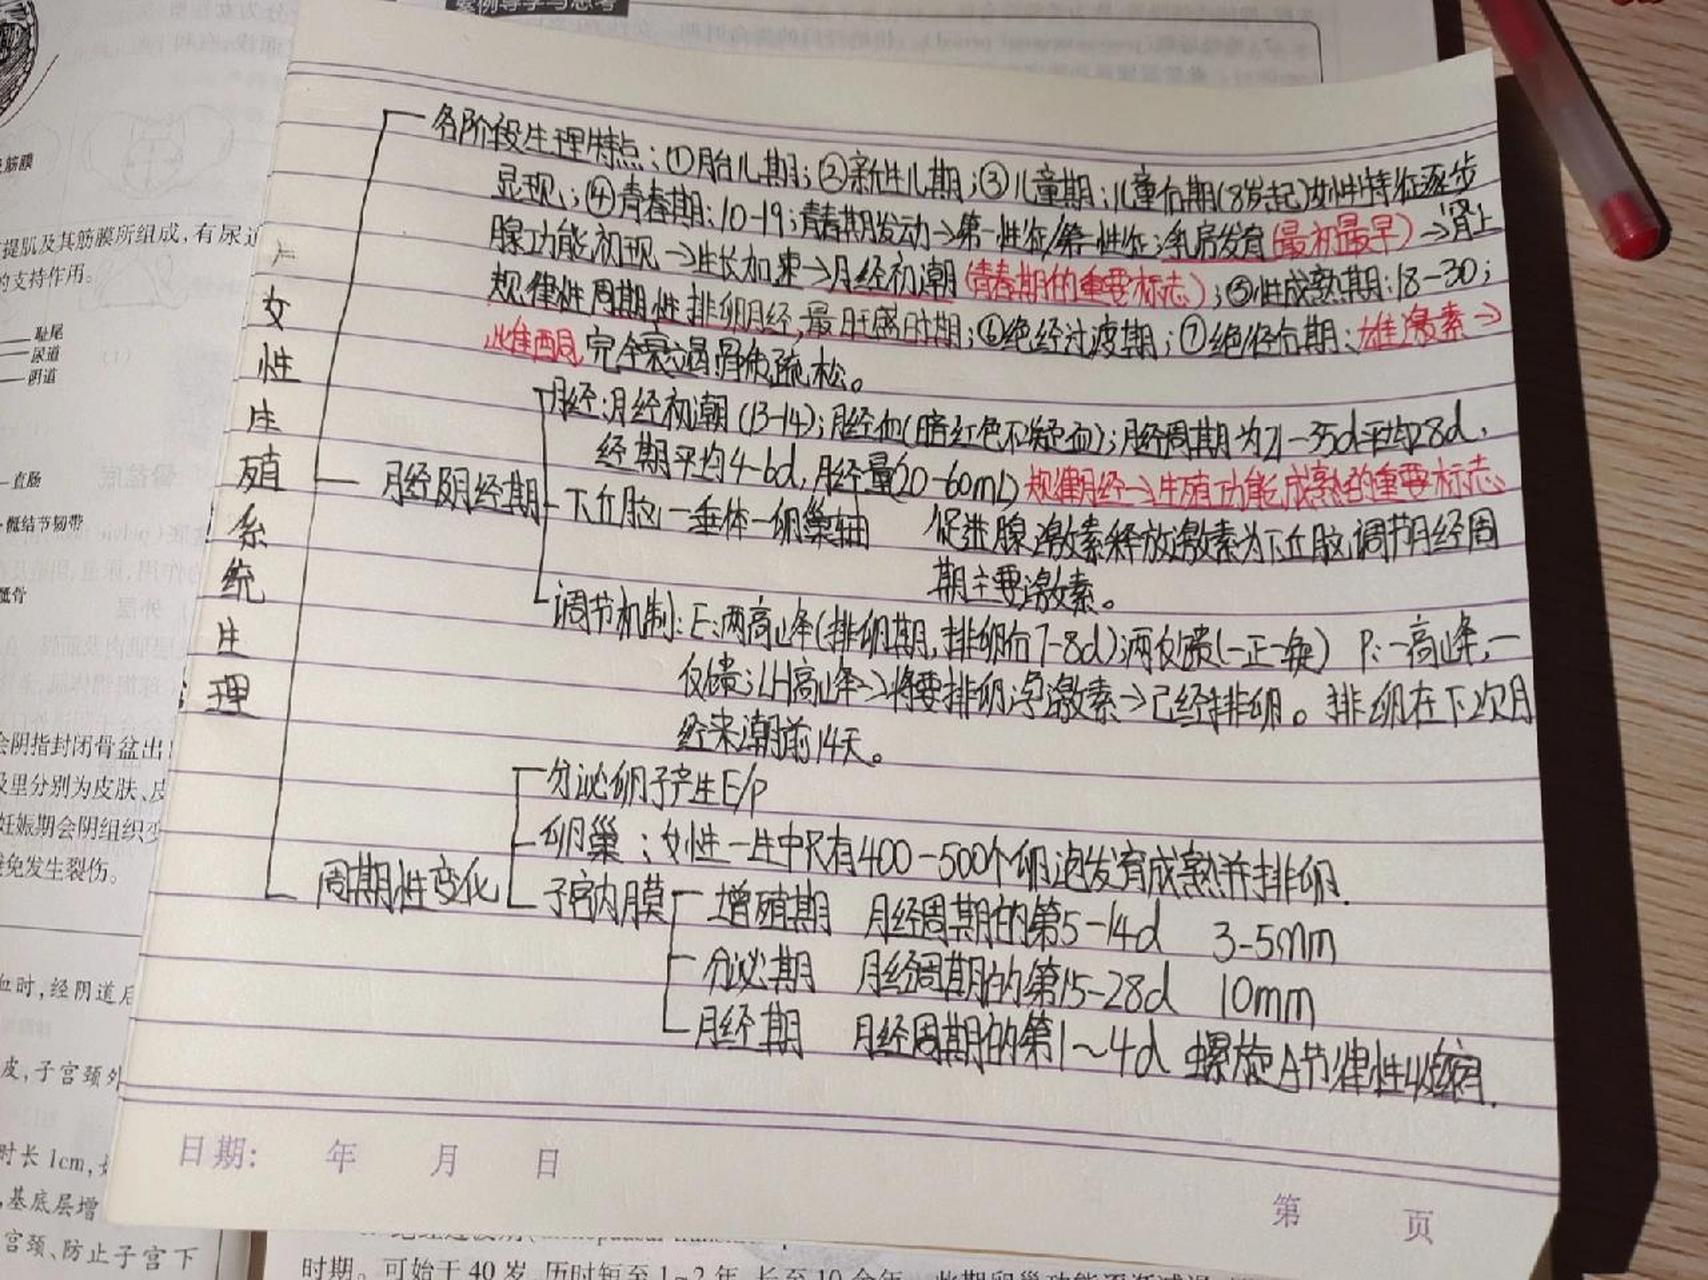 案例导学与思考
筋膜
提肌及其筋膜所组成,有尿道
的支持作用。
耻尾
尿道
阴道
直肠
骶结节韧带
骶骨
会阴指封闭骨盆出
及里分别为皮肤、皮
妊娠期会阴组织变
避免发生裂伤。
血时,经阴道后
皮,子宫颈外
时长1cm,
,基底层增
宫颈、防止子宫下
女性生殖系统生理
各阶段生理特点:①胎儿期;②新生儿期;③儿童期:儿童后期(8岁起)女性特征逐步
显现;④青春期:10-19;青春期发动→第一性征/第一性征:乳房发育(最初最早)→肾上
腺功能初现→生长加速→月经初潮(青春期的重要标志);⑤性成熟期:18-30;
规律性周期性排卵月经,最旺盛时期;⑥绝经过渡期;⑦绝经后期:雄激素→
雌酮 完全衰竭骨质疏松。
月经:月经初潮(13-14);月经血(暗红色不凝血);月经周期为21-35d平均28d,
经期平均4-6d,月经量(20-60mL) 规律月经→生殖功能成熟的重要标志
月经及月经期
下丘脑-垂体-卵巢轴 促进腺激素释放激素为下丘脑调节月经周
期主要激素。
调节机制:E:两高峰(排卵期,排卵后7-8d);两反馈(一正一负) P:一高峰,一
反馈;LH高峰→将要排卵 孕激素→已经排卵。排卵在下次月
经来潮前14天。
分泌卵子产生E/P
卵巢:女性一生中只有400-500个卵泡发育成熟并排卵.
周期性变化
子宫内膜 增殖期 月经周期的第5-14d 3-5mm
分泌期 月经周期的第15-28d 10mm
月经期 月经周期的第1~4d 螺旋A节律性收缩.
日期: 年 月 日
第 页
时期。可始于40岁,历时短至1~2年,长至10余年。此期卵巢功能逐渐减退